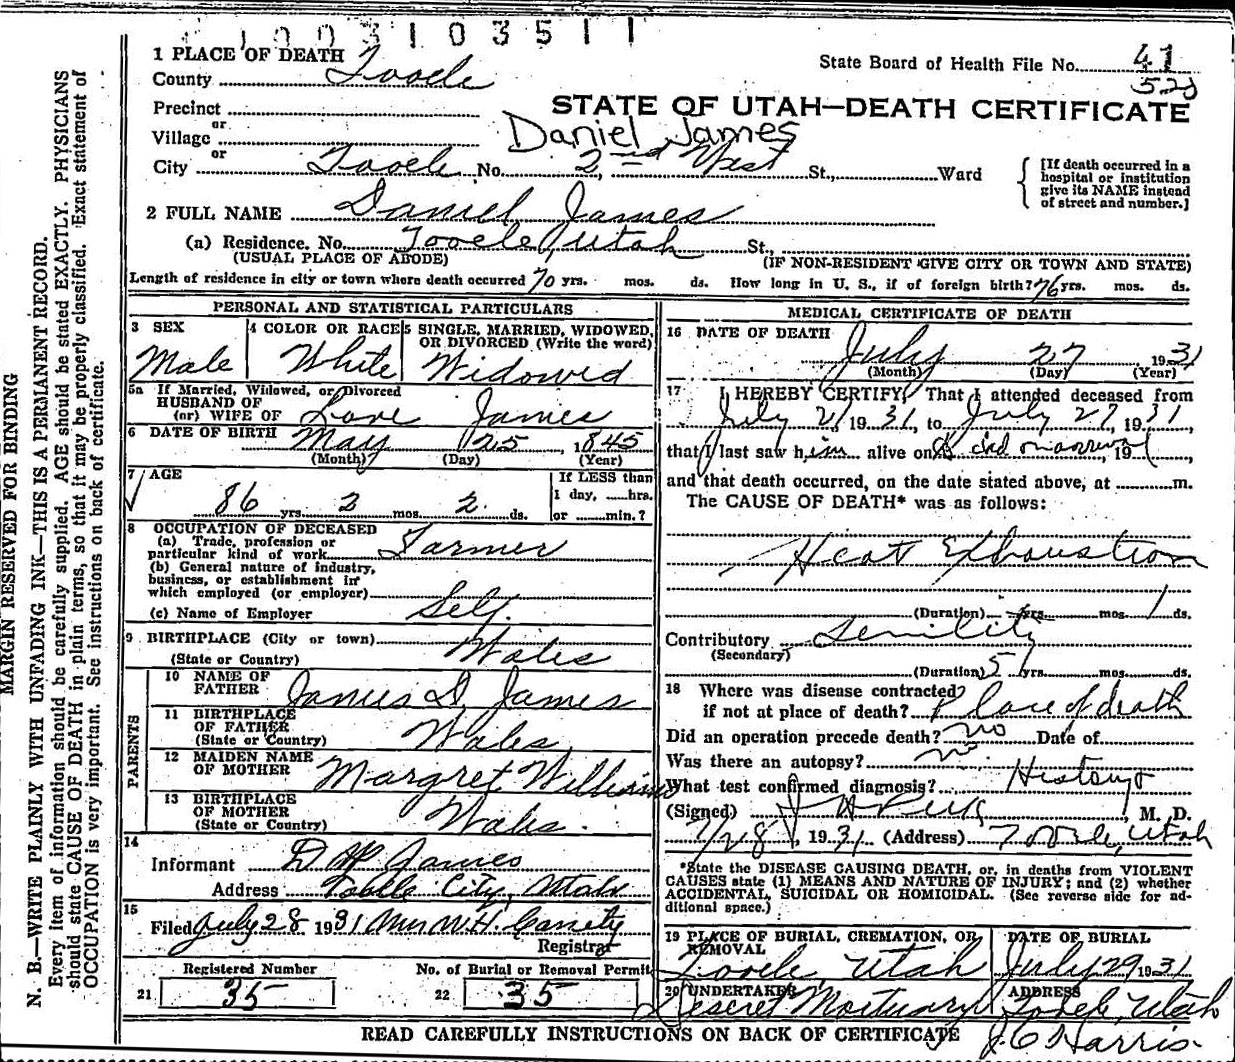 1003103511
1 PLACE OF DEATH
County Tooele
State Board of Health File No. 41
520
Precinct
STATE OF UTAH—DEATH CERTIFICATE
or
Village
Daniel James
or
City Tooele No. 2nd West St., Ward
[If death occurred in a
hospital or institution
give its NAME instead
of street and number.]
2 FULL NAME Daniel James
(a) Residence. No. Tooele, Utah St.,
(USUAL PLACE OF ABODE) (IF NON-RESIDENT GIVE CITY OR TOWN AND STATE)
Length of residence in city or town where death occurred 70 yrs. mos. ds. How long in U. S., if of foreign birth? 76 yrs. mos. ds.
PERSONAL AND STATISTICAL PARTICULARS
3 SEX
Male
4 COLOR OR RACE
White
5 SINGLE, MARRIED, WIDOWED,
OR DIVORCED (Write the word)
Widowed
5a If Married, Widowed, or Divorced
HUSBAND OF
(or) WIFE OF Love James
6 DATE OF BIRTH May 25, 1845
(Month) (Day) (Year)
7 AGE
86 yrs. 2 mos. 2 ds.
If LESS than
1 day, hrs.
or min.?
8 OCCUPATION OF DECEASED
(a) Trade, profession or
particular kind of work Farmer
(b) General nature of industry,
business, or establishment in
which employed (or employer)
(c) Name of Employer Self.
9 BIRTHPLACE (City or town)
(State or Country) Wales
PARENTS
10 NAME OF
FATHER James D. James
11 BIRTHPLACE
OF FATHER
(State or Country) Wales
12 MAIDEN NAME
OF MOTHER Margret Williams
13 BIRTHPLACE
OF MOTHER
(State or Country) Wales.
14
Informant D W James
Address Tooele City, Utah
15
Filed July 28 1931 Mrs W.H. Garrety
Registrar
Registered Number
21 35
No. of Burial or Removal Permit
22 35
MEDICAL CERTIFICATE OF DEATH
16 DATE OF DEATH
July 27 1931
(Month) (Day) (Year)
17 I HEREBY CERTIFY, That I attended deceased from
July 21 1931, to July 27, 1931,
that I last saw him alive on dead on arrival, 19
and that death occurred, on the date stated above, at m.
The CAUSE OF DEATH* was as follows:
Heat Exhaustion
(Duration) yrs. mos. 1 ds.
Contributory Senility
(Secondary)
(Duration) 5 yrs. mos. ds.
18 Where was disease contracted
if not at place of death? Place of death
Did an operation precede death? no Date of
Was there an autopsy? no
What test confirmed diagnosis? History
(Signed) J H Peck, M. D.
7/28, 1931 (Address) Tooele, Utah
*State the DISEASE CAUSING DEATH, or, in deaths from VIOLENT
CAUSES state (1) MEANS AND NATURE OF INJURY; and (2) whether
ACCIDENTAL, SUICIDAL OR HOMICIDAL. (See reverse side for ad-
ditional space.)
19 PLACE OF BURIAL, CREMATION, OR
REMOVAL
Tooele Utah
DATE OF BURIAL
July 29 1931
20 UNDERTAKER
Deseret Mortuary
ADDRESS
Tooele, Utah
J. C. Harris.
READ CAREFULLY INSTRUCTIONS ON BACK OF CERTIFICATE
MARGIN RESERVED FOR BINDING
N. B.—WRITE PLAINLY WITH UNFADING INK—THIS IS A PERMANENT RECORD.
Every item of information should be carefully supplied. AGE should be stated EXACTLY. PHYSICIANS
should state CAUSE OF DEATH in plain terms, so that it may be properly classified. Exact statement of
OCCUPATION is very important. See instructions on back of certificate.